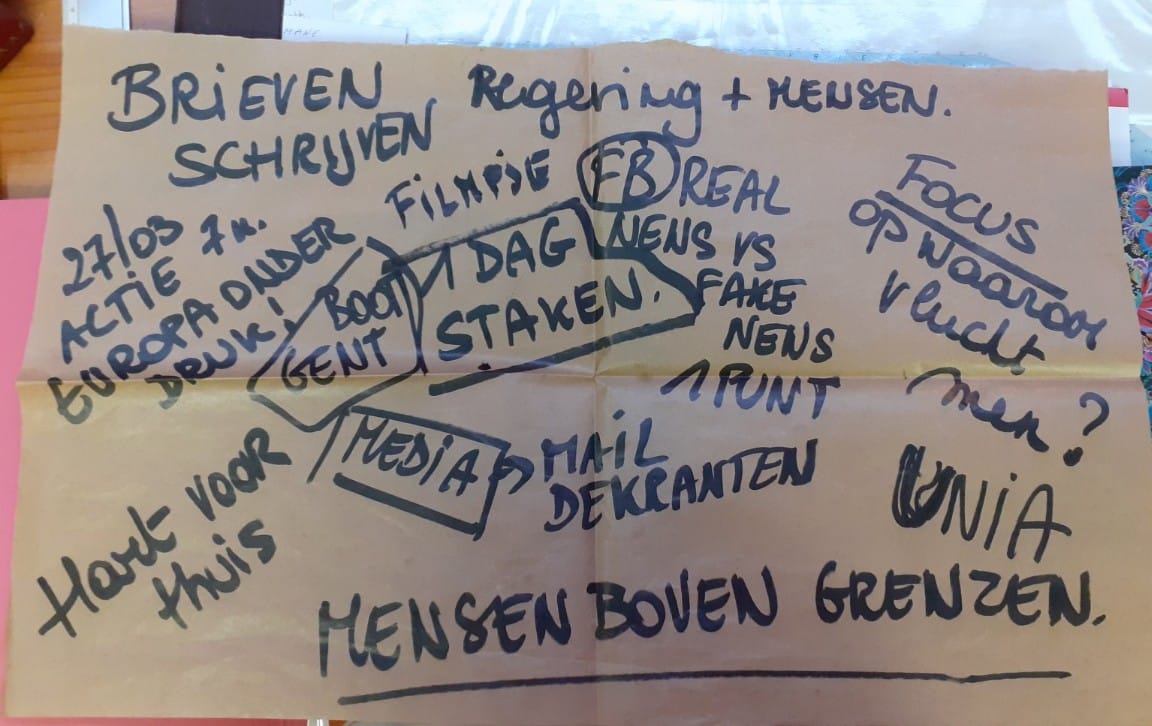 BRIEVEN
SCHRIJVEN
Regering + MENSEN.
FILMPJE
FB
REAL
NEWS VS
FAKE
NEWS
1 PUNT
FOCUS
op waarom
vlucht
men?
27/03 7u.
ACTIE
EUROPA ONDER
DRUK!
BOOT
GENT
1 DAG
STAKEN.
MEDIA
MAIL
DE KRANTEN
UNIA
Hart voor
thuis
MENSEN BOVEN GRENZEN.